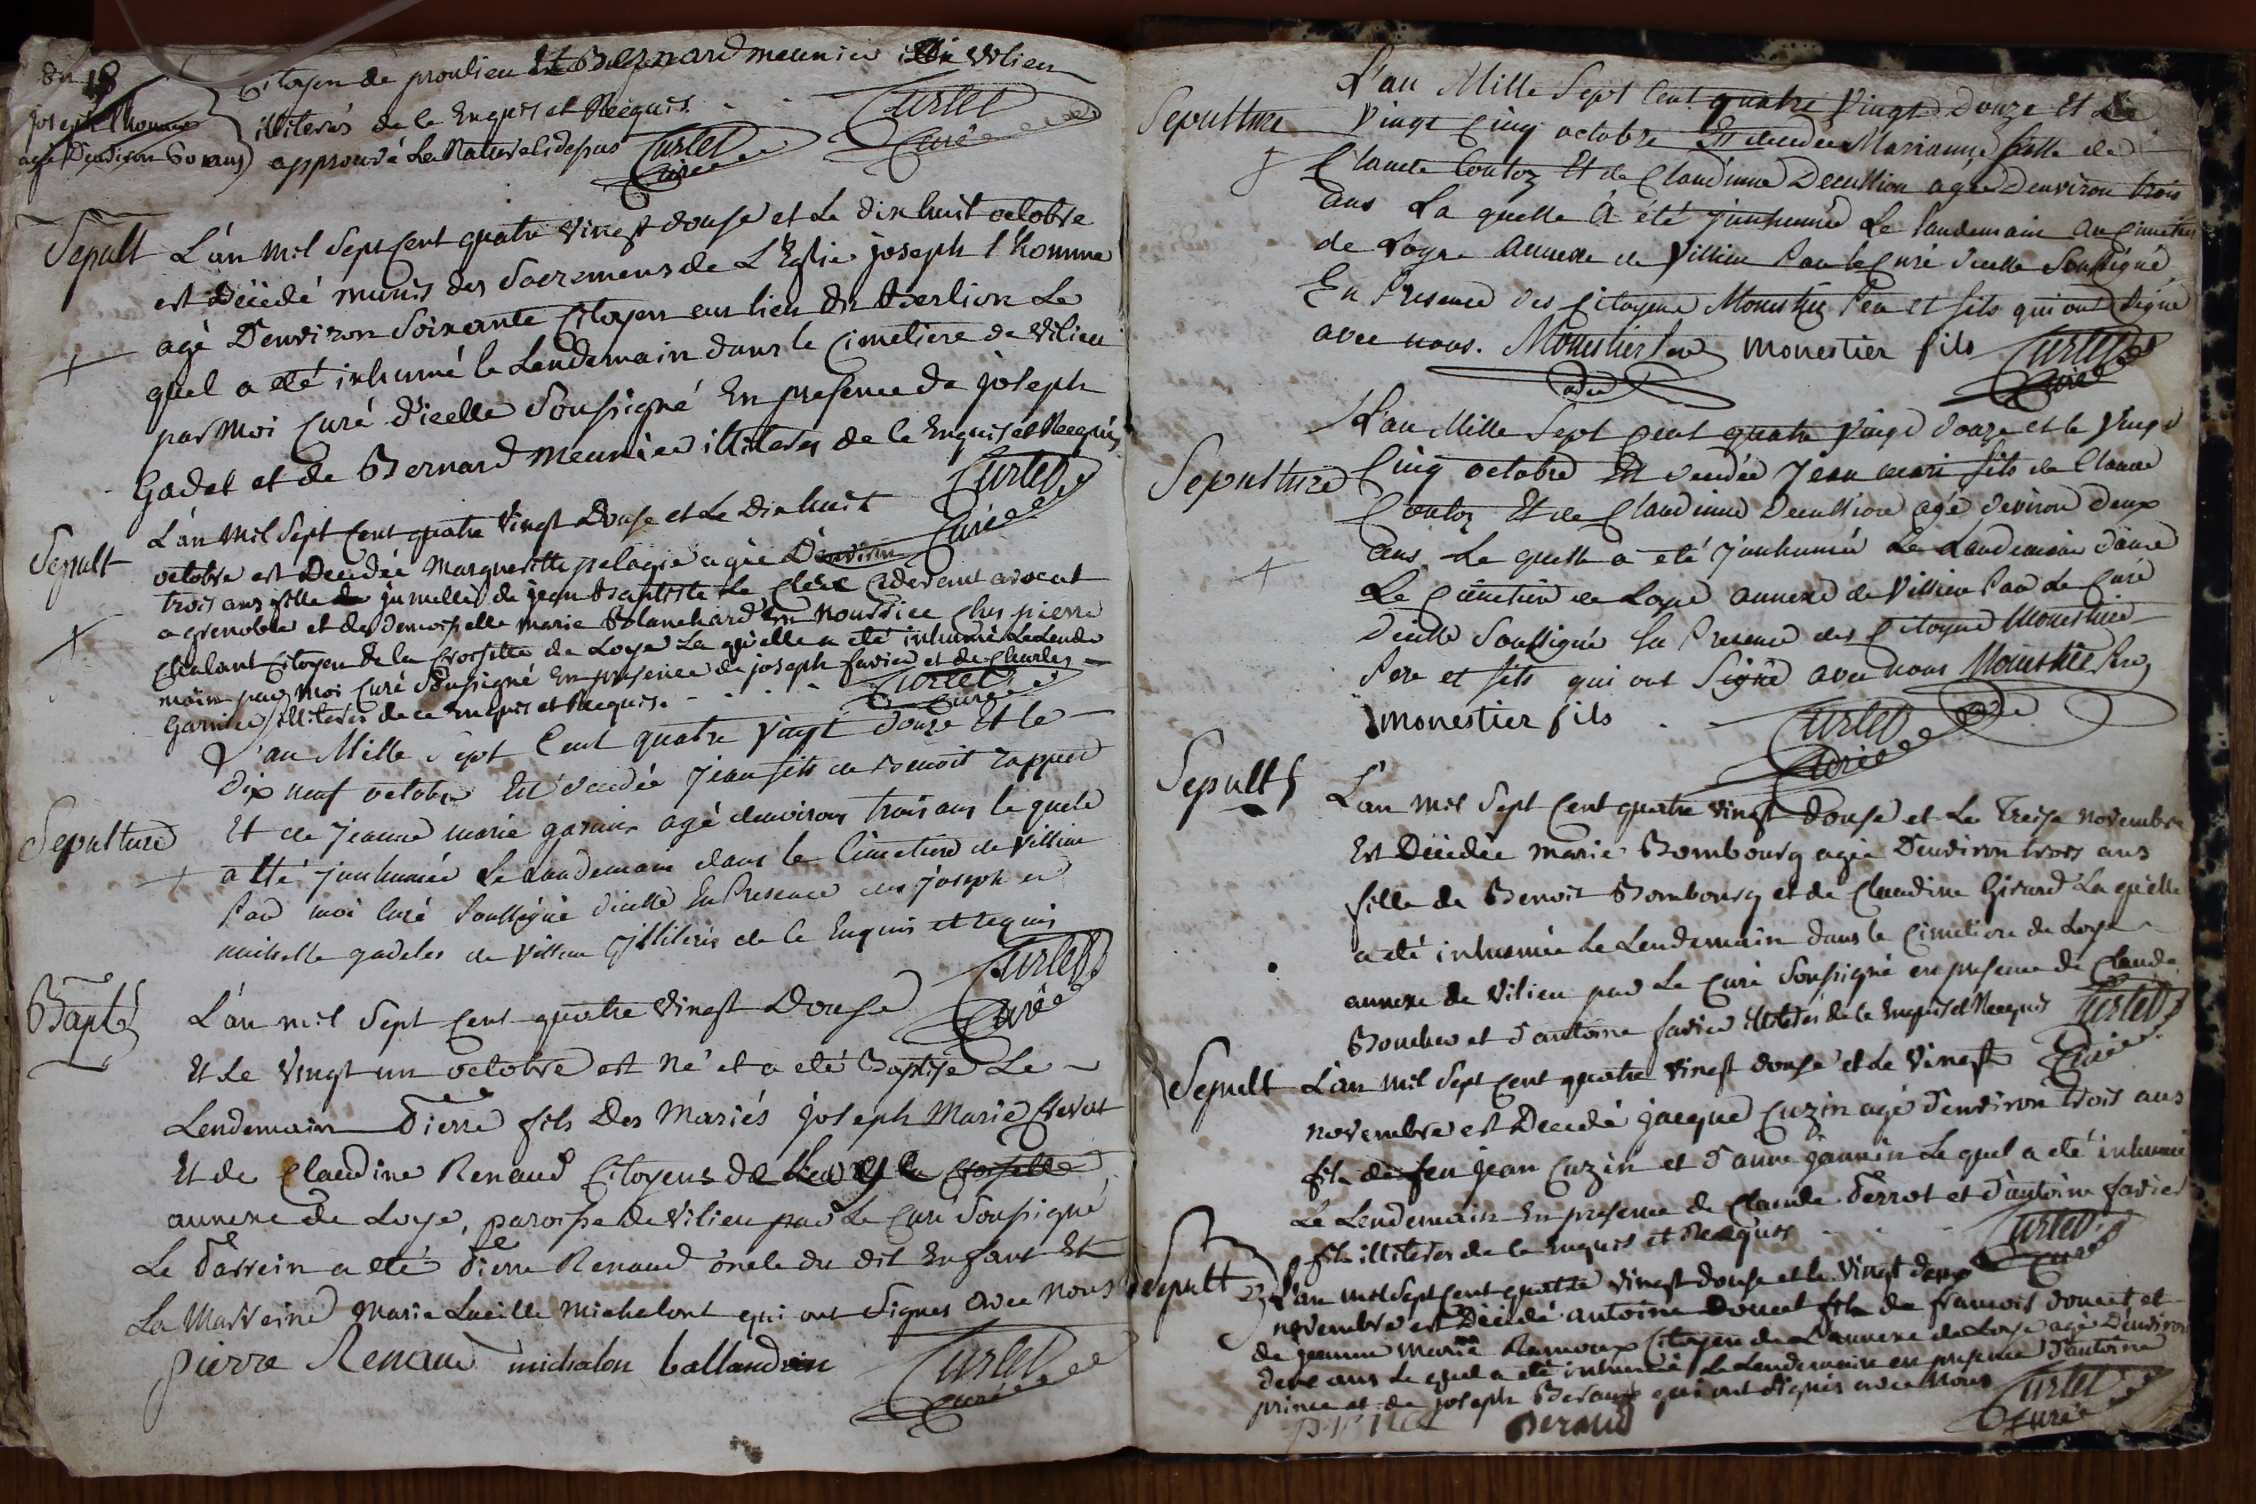 du 18
joseph l'homme
agé Denviron 60 ans
Citoyen de proulieu Et Bernard meunier de vilieu
illiterés de ce Enquis et Recquis.
approuvé La Rature cidessus Curlet Curlet
Curé Curé
Sepult L'an mil Sept Cent quatre vinest douse et Le dixhuit octobre
est Décedé munis des Sacremens de L'Eglise joseph l'homme
agé D'environ Soixante Citoyen au lieu dit Berlion Le
quel a eté inhumé le Lendemain dans le Cimetiere de vilieu
par Moi Curé d'icelle Soussigné En presence de joseph
Gadet et de Bernard meunier illiteres de Ce Enquis et Recquis
Curlet
Curé
Sepult L'an mil Sept Cent quatre vinest Douse et Le Dixhuit
octobre est Decedée Margueritte pelagie agée D'environ
trois ans fille jumelle de jean Baptiste Le Clerc Cidevant avocat
a grenoble et de demoiselle marie Blanchard En Nourrice Ches pierre
Chalant Citoyen de la Croisette de Loye La quelle a eté inhumé Le Lende
main par moi Curé Soussigné En presence de joseph favier et de Charles
Garnier illiteres de ce Enquis et Recquis. Curlet
Curé
L'an Mille Sept Cent quatre Vingt Douze Et le
dix neuf octobre Est décédée Jean fils de Benoit
Sepulture Et de Jeanne marie garnier agé denviron trois ans le quele
a été Jnnhumée Le Landemain dans le Cimetiere de Villieu
Par moi Curé Soussigné dicelle En Presence de Joseph et
michelle gadeles de Villieu Jlliterés de Ce Enquis et requis
Curlet
Curé
Bapt L'an mil Sept Cent quatre Vinest Douse
Et Le Vingt un octobre est Né et a eté Baptisé Le
Lendemain Pierre fils Des Mariés joseph Marie Crevat
Et de Claudine Renaud Citoyens de la Croisette
annexe de Loye, paroisse de Vilieu par Le Curé Soussigné
Le Parrein a eté Pierre Renaud oncle du dit Enfant Et
La Marreine Marie Lucille michalont qui ont Signes avec Nous
pierre Renaud michalon ballandrin Curlet
Curé
L'an Mille Sept Cent quatre Vingt Douze Et Le
Sepulture Vingt Cinq octobre Est decedée Marianne fille de
Claude Coutoz Et de Claudinne Decullion agée denviron trois
ans La quelle A été Jnnhumée Le Landemain Au Cimetiere
de Loye Annexe de Villieu Par le Curé dicelle Soussigné
En Presence des Citoyens Monestier Pere et fils qui ont Signé
avec nous. Monestier Pere monestier fils Curlet
Curé
L'an Mille Sept Cent quatre Vingt Douze et le Vingt
Sepulture Cinq octobre Est decedée Jean mari fils de Claude
Coutoz Et de Claudinne Decullion agé denviron deux
ans Le quelle a eté Jnnhumée Le Landemain dans
Le Cimetiere de Loye annexe de Villieu Par Le Curé
Dicelle Soussigné En Presence des Citoyens Monestier
Pere et fils qui ont Signé avec nous Monestier Pere
monestier fils Curlet
Curé
Sepult L'an mil Sept Cent quatre vinest Douse et Le Treise novembre
Est Décedée marie Bombourg agée D'environ trois ans
fille de Benoit Bombourg et de Claudine Girard La quelle
a eté inhumée Le Lendemain dans le Cimetiere de Loye
annexe de Vilieu par Le Curé Soussigné en presence de Claude
Boucher et d'antoine favier illiterés de Ce Enquis et Recquis Curlet
Curé
Sepult L'an mil Sept Cent quatre vinest douse et Le Vinest
novembre est Decedé jacque Cuzin agé d'environ trois ans
fils de feu jean Cuzin et d'anne jannin Le quel a eté inhumé
Le Lendemain En presence de Claude Perrot et d'antoine favier
fils illiteres de Ce Enquis et Recquis Curlet
Curé
Sepult L'an mil Sept Cent quatre vinest douse et le vinest deux
novembre est Décedé antoine Doucet fils de francois doucet et
de jeanne marie Ramoux Citoyen de L'annexe de Loye agé D'environ
deux ans Le quel a eté inhumé Le Lendemain en presence d'antoine
prince et de joseph Beraud qui ont Signés avec Nous Curlet
prince Beraud Curé